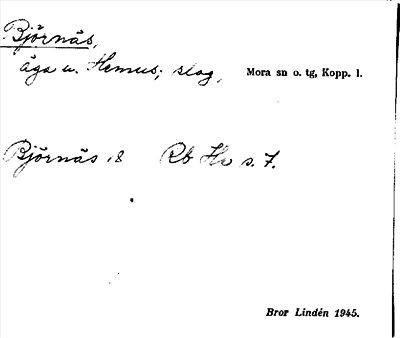 Björnäs,
äga u. Hemus; slog, Mora sn o. tg, Kopp. l.
Björnäs 18 Rb Hu s. 7.
Bror Lindén 1945.